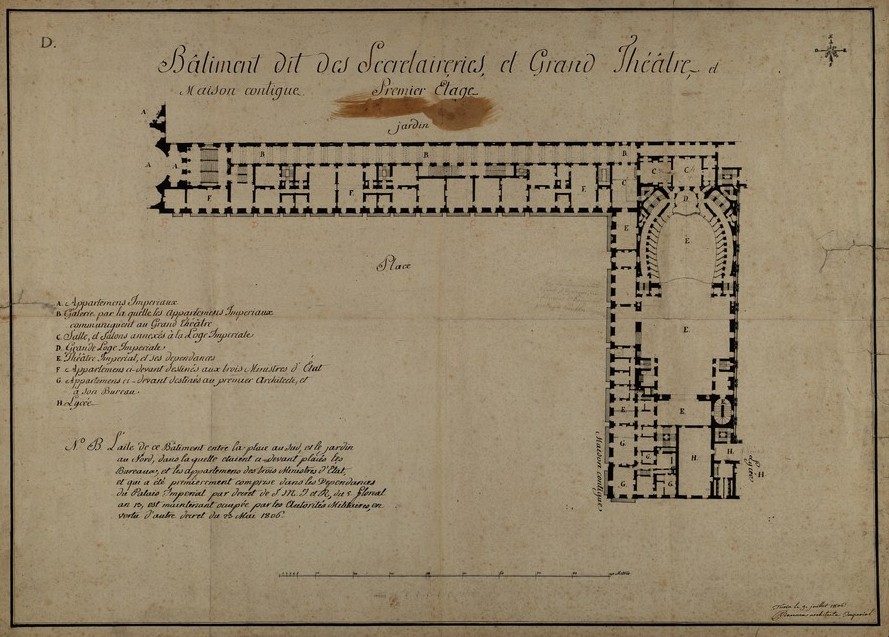 D.
Bâtiment dit des Secretaireries, et Grand Théâtre, et
Maison contigue. Premier Etage
jardin
A
A A
B B B
F F F
C C C
D
E E
Place
E
A. Appartemens Imperiaux
B. Galerie par la quelle les Appartemens Imperiaux
communiquent au Grand théâtre
C. Salle, et Salons annexés à la Loge Imperiale
D. Grande Loge Imperiale
E. Théâtre Imperial, et ses dependances
F. Appartemens ci-devant destinés aux trois Ministres d'État
G. Appartemens ci-devant destinés au premier Architecte, et
à son Bureau
H. Lycée
N.º B L'aile de ce Bâtiment entre la place au Sud, et le jardin
au Nord, dans la quelle etaient ci-devant placés les
Bureaux, et les appartemens des trois Ministres d'État,
et qui a été premierement comprise dans les Dependances
du Palais Imperial par decret de S. M. I. et R. du 5 floreal
an 13, est maintenant occupée par les Autorités Militaires, en
vertu d'autre decret du 23 Mai 1806.
E E
G H H
G G G
Maison contigue
Lycée H
Turin le 9 juillet 1806
architecte Imperial